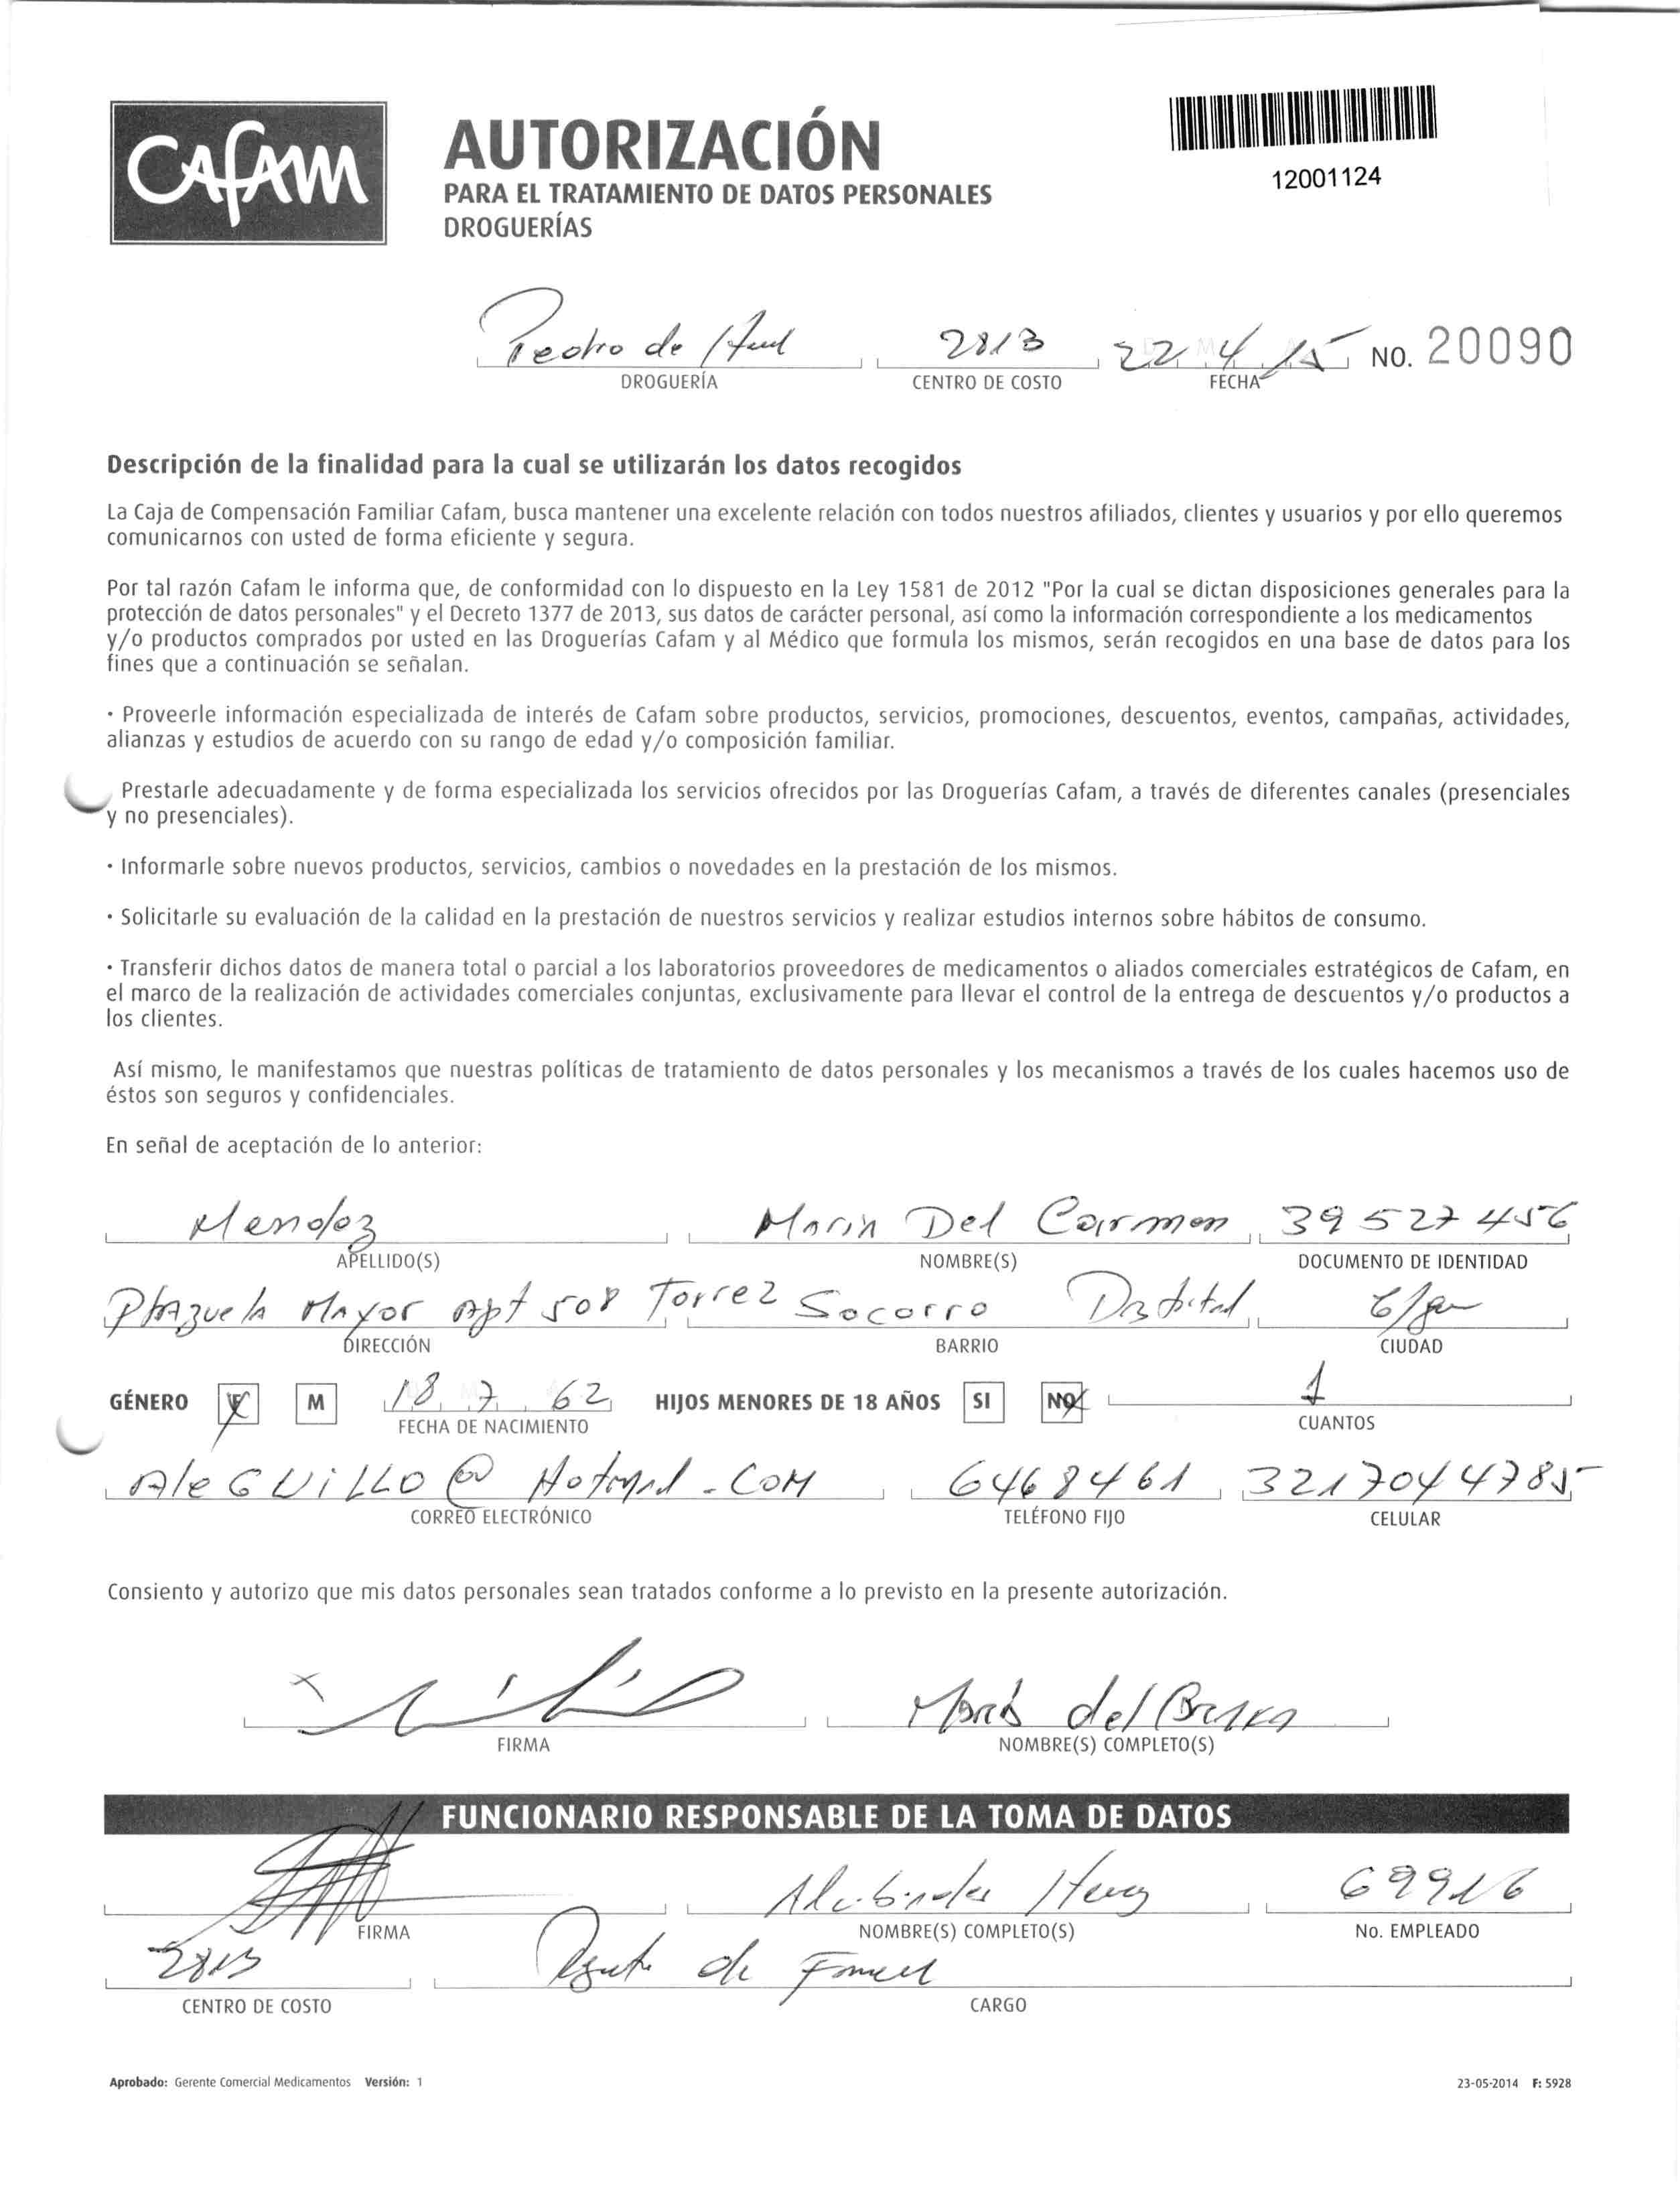 CAFAM
AUTORIZACIÓN
PARA EL TRATAMIENTO DE DATOS PERSONALES
DROGUERÍAS
12001124
Pedro de 2813 22 4 15 NO. 20090
DROGUERÍA CENTRO DE COSTO FECHA
Descripción de la finalidad para la cual se utilizarán los datos recogidos
La Caja de Compensación Familiar Cafam, busca mantener una excelente relación con todos nuestros afiliados, clientes y usuarios y por ello queremos
comunicarnos con usted de forma eficiente y segura.
Por tal razón Cafam le informa que, de conformidad con lo dispuesto en la Ley 1581 de 2012 "Por la cual se dictan disposiciones generales para la
protección de datos personales" y el Decreto 1377 de 2013, sus datos de carácter personal, así como la información correspondiente a los medicamentos
y/o productos comprados por usted en las Droguerías Cafam y al Médico que formula los mismos, serán recogidos en una base de datos para los
fines que a continuación se señalan.
· Proveerle información especializada de interés de Cafam sobre productos, servicios, promociones, descuentos, eventos, campañas, actividades,
alianzas y estudios de acuerdo con su rango de edad y/o composición familiar.
Prestarle adecuadamente y de forma especializada los servicios ofrecidos por las Droguerías Cafam, a través de diferentes canales (presenciales
y no presenciales).
· Informarle sobre nuevos productos, servicios, cambios o novedades en la prestación de los mismos.
· Solicitarle su evaluación de la calidad en la prestación de nuestros servicios y realizar estudios internos sobre hábitos de consumo.
· Transferir dichos datos de manera total o parcial a los laboratorios proveedores de medicamentos o aliados comerciales estratégicos de Cafam, en
el marco de la realización de actividades comerciales conjuntas, exclusivamente para llevar el control de la entrega de descuentos y/o productos a
los clientes.
Así mismo, le manifestamos que nuestras políticas de tratamiento de datos personales y los mecanismos a través de los cuales hacemos uso de
éstos son seguros y confidenciales.
En señal de aceptación de lo anterior:
Mendoz Maria Del Carmen 39527456
APELLIDO(S) NOMBRE(S) DOCUMENTO DE IDENTIDAD
Plazuela Mayor Apt 508 Torre 2 Socorro C/gen
DIRECCIÓN BARRIO CIUDAD
GÉNERO F M 18 7 62 HIJOS MENORES DE 18 AÑOS SI NO 1
FECHA DE NACIMIENTO CUANTOS
AleGUiLLO@Hotmail.COM 6468461 3217044785
CORREO ELECTRÓNICO TELÉFONO FIJO CELULAR
Consiento y autorizo que mis datos personales sean tratados conforme a lo previsto en la presente autorización.
x Maria del
FIRMA NOMBRE(S) COMPLETO(S)
FUNCIONARIO RESPONSABLE DE LA TOMA DE DATOS
69916
FIRMA NOMBRE(S) COMPLETO(S) No. EMPLEADO
2813 de
CENTRO DE COSTO CARGO
Aprobado: Gerente Comercial Medicamentos Versión: 1 23-05-2014 F: 5928